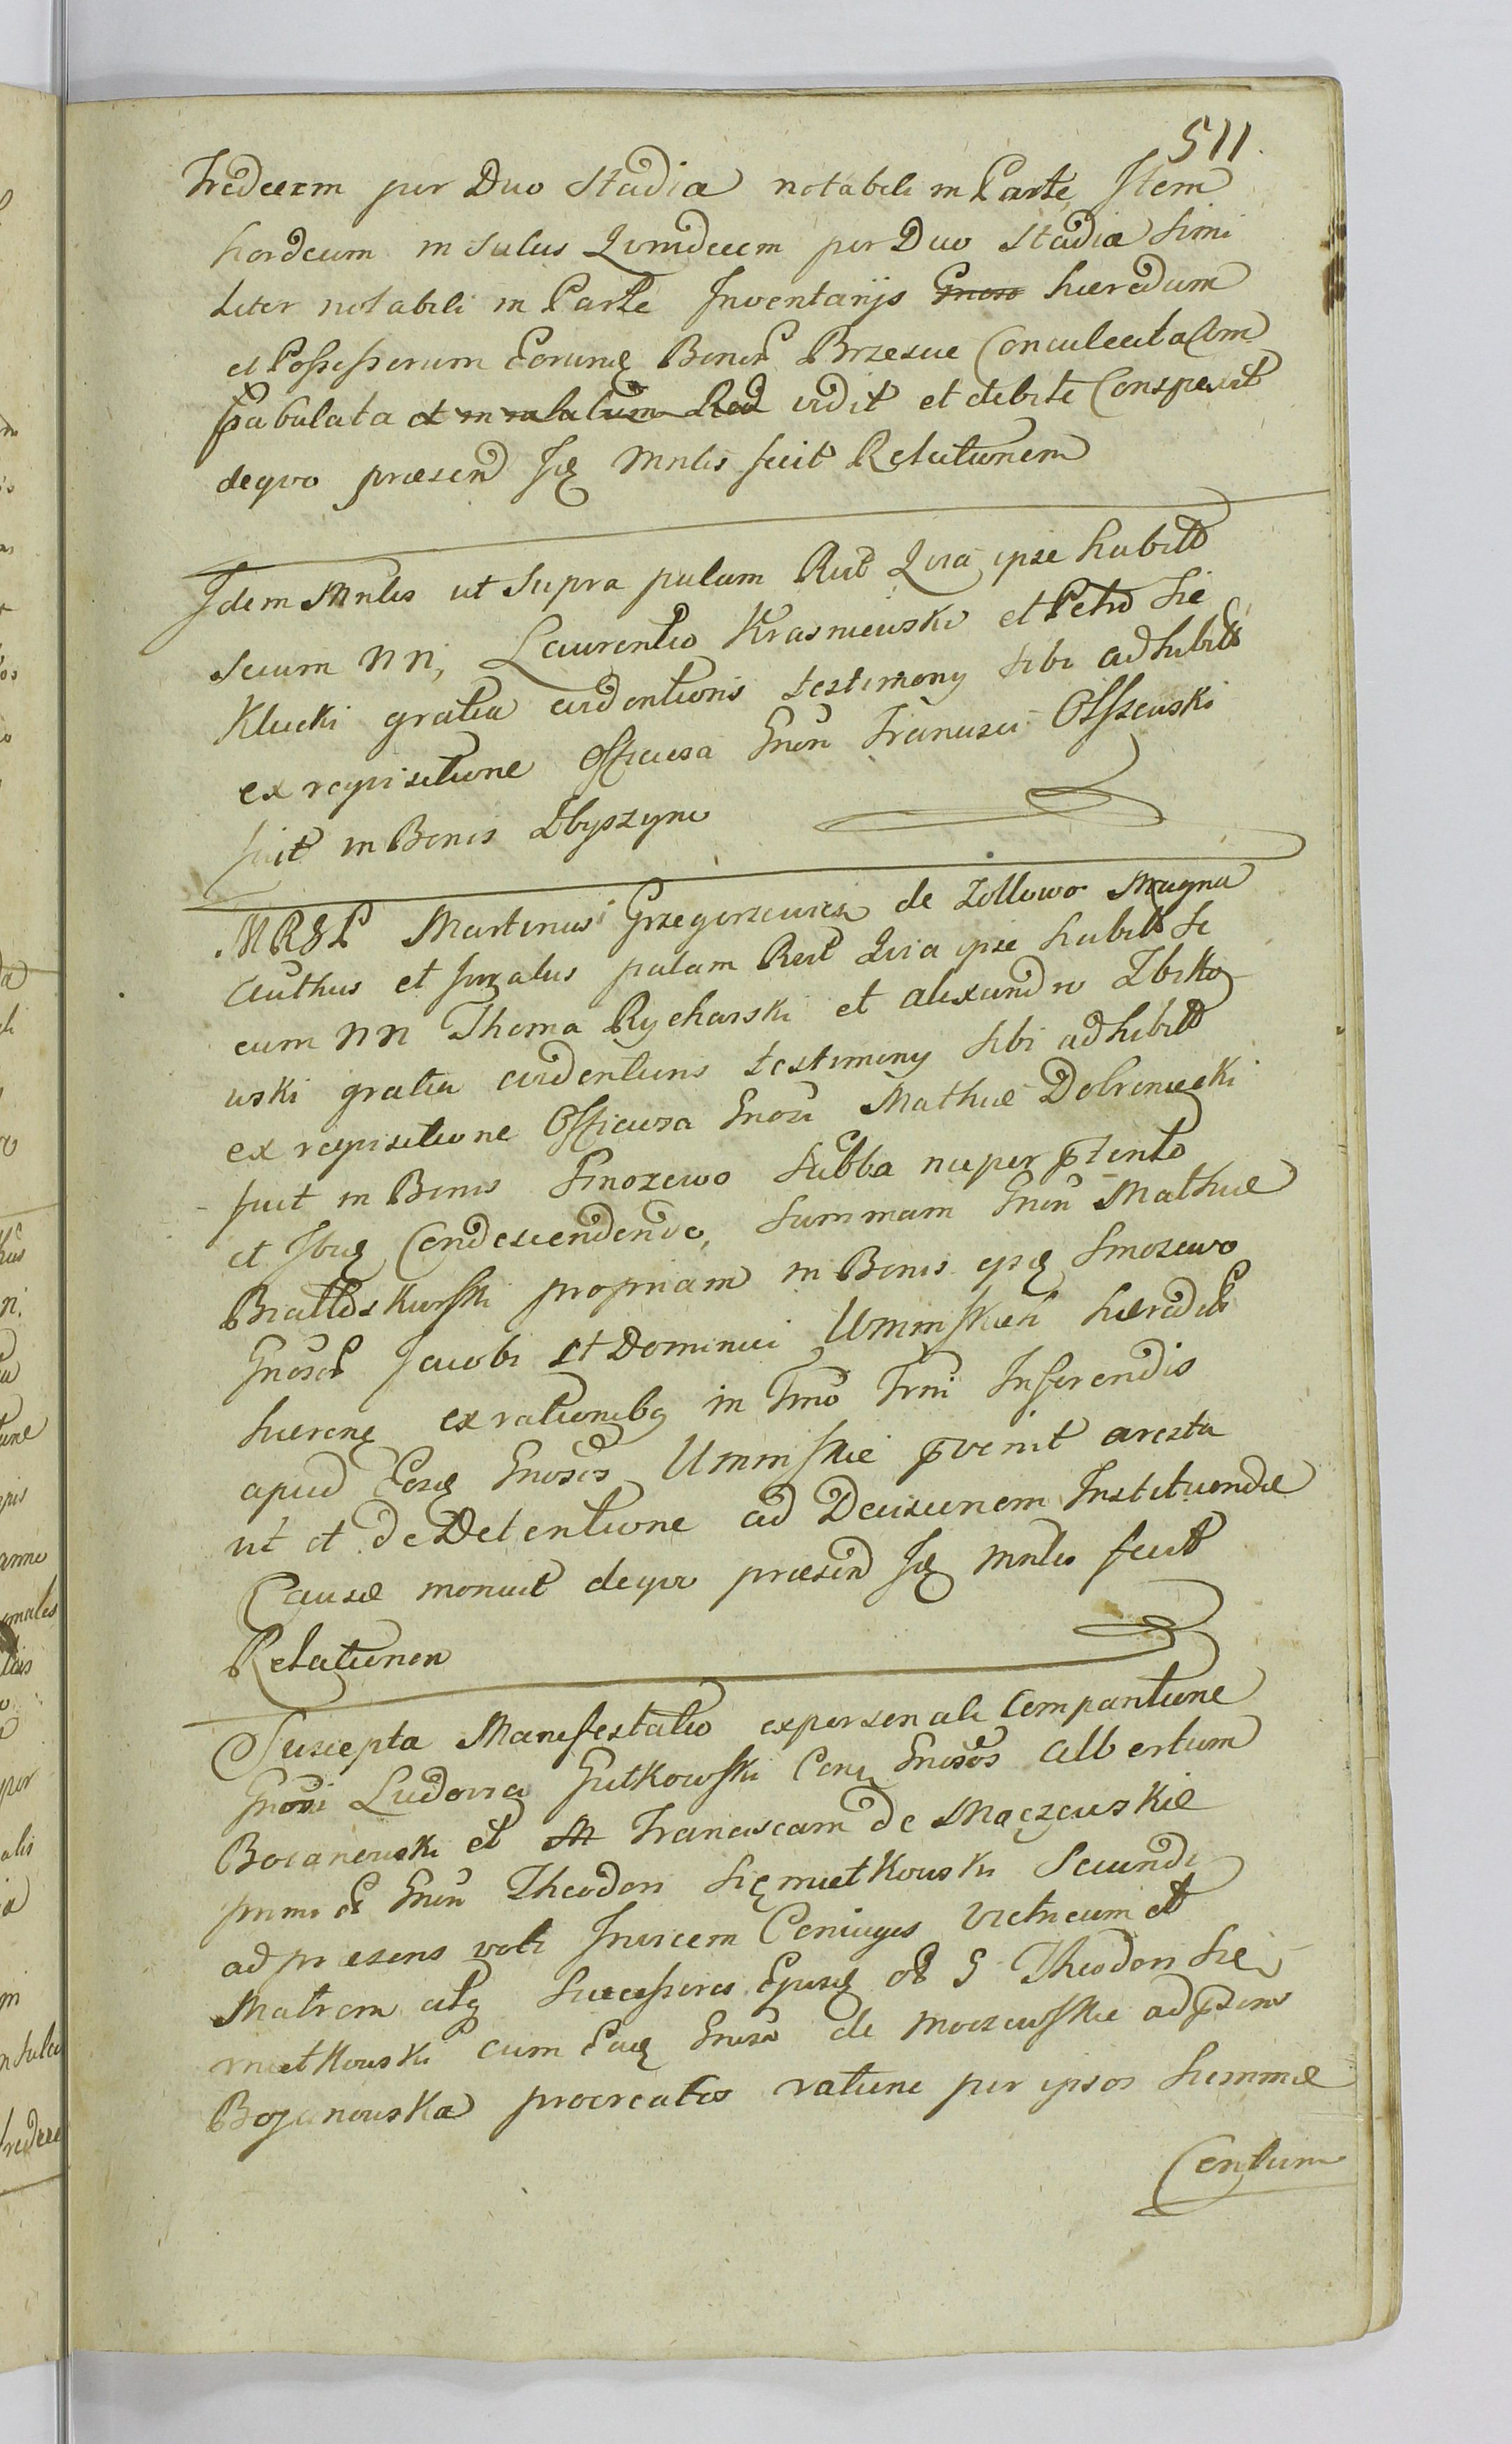 511.
Tredecim per Duo Stadia notabili in Parte, Item
hordeum in sulcis Quindecim per Duo Stadia simi
liter notabili in Parte Inventarijs heredum
et Possessorum Eorundq Bonor Brzescie Conculcata Com
pabulata et in Red vidit et debite Conspexit
dequo præsen Jq Mnlis fecit Relationem
Idem Mnlis ut Supra palam Rect Quia ipse habitt
secum NN, Laurentio Krasniewski et Petro Sie
Klucki gratia evidentioris testimony sibi adhibitt
ex requisitione Officiosa Gnon Francisci Olszewski
fuit in Bonis Zbyszyno
MRGL Martinus Grzegorzewicz de Zollowo Magna
authus et Jurzatus palam Rect Quia ipse habitt se
cum NN Thoma Rycharski et alexandro Zbiko
wski gratia evidentioris testimony sibi adhibitt
ex requisitione Officiosa Gnosi Mathiæ Dobroniecki
fuit in Bonis Smozewo Subba nuper ptento
et Ibiq Condescendendo, Summam Gnon Mathiæ
Białłoskurski propriam in Bonis ejsq Smozewo
Gnosor Jacobi et Dominici Uminskich hæredib
hæreng ex rationibq in Tmo Trni Inferendis
apud Eosq Gnosos Uminskie pvenit aresta
vit et de Detentione ad Decisionem Instituendæ
Causæ monuit dequo præsen Jq Mnlis fecit
Relationem
Suscepta Manifestatio expersonali Comparitione
Gnosi Ludovici Gutkowski Cong Gnosos Albertum
Bocianowski et M Franciscam de Mączewskie
primi et Gnon Theodori Siemietkowski Secundi
ad præsens voti Invicem Coniuges Vitricum et
Matrem atq Successores Ejusq ol G Theodori Sie
mietkowski cum Eaq Gnosa de Moczewskie ad psens
Bojanowska procreatos ratione per ipsos Summæ
Centum